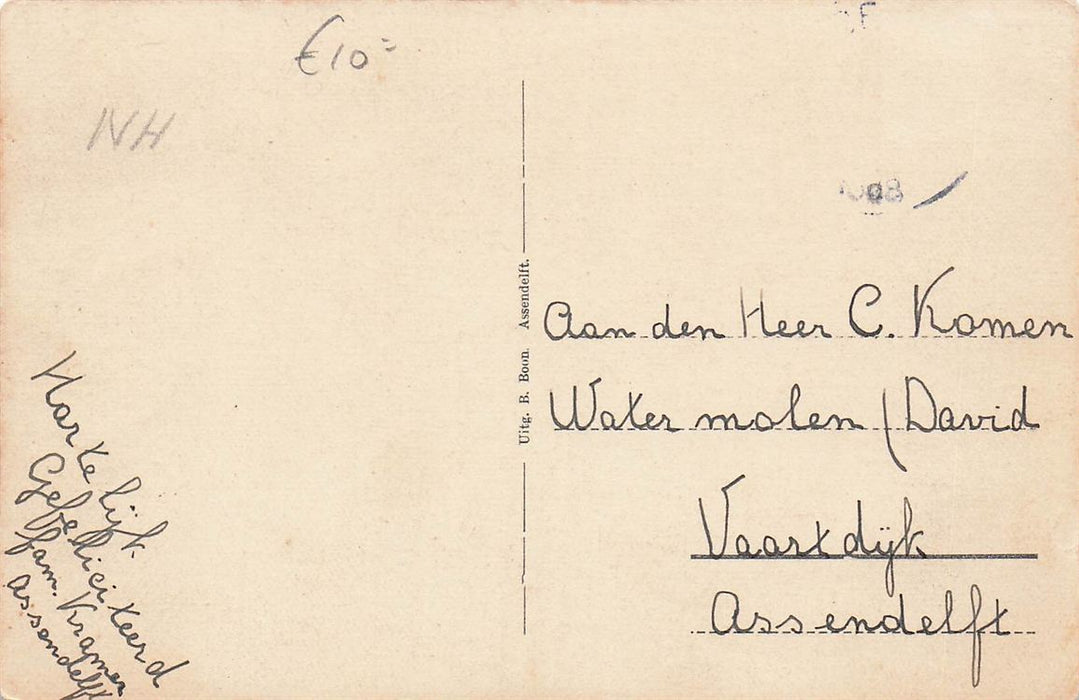 €10=
NH
Hartelijk
Gefeliciteerd
fam. Kramer
Assendelft
Uitg. B. Boon. Assendelft.
Aan den Heer C. Komen
Water molen (David
Vaartdijk
Assendelft